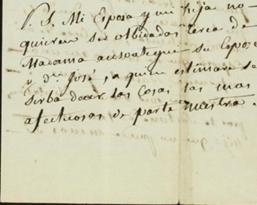 P. S. Mi Esposa y mi hija no
quieren ser olbidadas cerca de
Madama su Esposa
y dn José, a quien estimaré se
sirba decir las cosas las mas
afectuosas de parte nuestra.